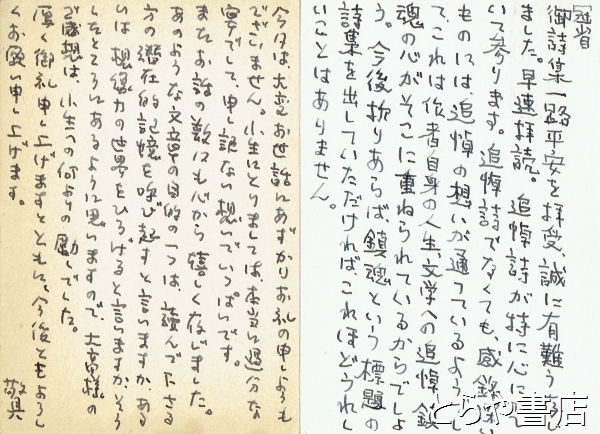 冠省
御詩集一路平安を拝受、誠に有難うござい
ました。早速拝読。追悼詩が特に心にしみ
て参ります。追悼詩でなくても、感銘深い
ものには追悼の想いが通っているようでし
て、これは作者自身の人生、文学への追悼、鎮
魂の心がそこに重ねられているからでしょ
う。今後折りあらば、鎮魂という標題の
詩集を出していただければ、これほどうれし
いことはありません。
今回は、大変お世話にあずかりお礼の申しようも
ございません。小生にとりましては本当に過分な
事でして、申し訳ない想いでいっぱいです。
またお話の数々にも心から嬉しく存じました。
あのような文章の目的の一つは、読んで下さる
方の潜在的記憶を呼び起すと言いますか、ある
いは想像力の世界をひろげると言いますか、そう
したところにあるように思いますので、大畠様の
ご感想は、小生への何よりの励しでした。
厚く御礼申し上げますとともに、今後ともよろし
くお願い申し上げます。
敬具
とらや書店